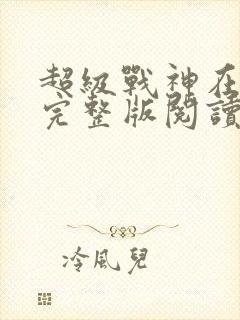 超級戰神在
完整版閱讀
冷風兒